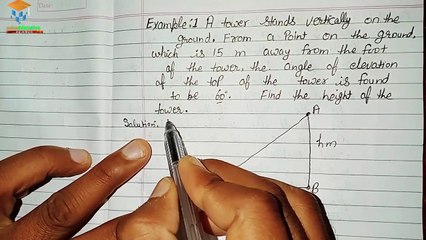 Example:1 A tower stands vertically on the
ground. From a Point on the ground,
which is 15 m away from the foot
of the tower, the angle of elevation
of the top of the tower is found
to be 60°. Find the height of the
tower.
Solution:
A
hm
B